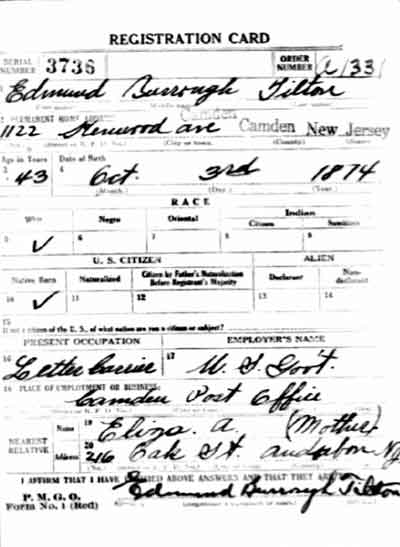 REGISTRATION CARD
SERIAL NUMBER 3736 ORDER NUMBER A1331
Edmund Burrough Tilton
PERMANENT HOME ADDRESS
Camden
1122 Kenwood ave Camden New Jersey
Age in Years Date of Birth
43 Oct. 3rd 1874
(Month.) (Day.) (Year.)
RACE
White Negro Oriental Indian
Citizen
5 ✓ 6 7 8 9
U. S. CITIZEN ALIEN
Native Born Naturalized Citizen by Father's Naturalization Before Registrant's Majority Declarant Non-declarant
10 ✓ 11 12 13 14
15
If not a citizen of the U. S., of what nation are you a citizen or subject?
PRESENT OCCUPATION EMPLOYER'S NAME
16 Letter Carrier 17 U. S. Gov't.
18 PLACE OF EMPLOYMENT OR BUSINESS:
Camden Post Office
NEAREST RELATIVE
Name 19 Eliza. A. (Mother)
Address 20 216 Oak St. Audubon NJ
I AFFIRM THAT I HAVE VERIFIED ABOVE ANSWERS AND THAT THEY ARE
P. M. G. O.
Form No. 1 (Red) Edmund Burrough Tilton